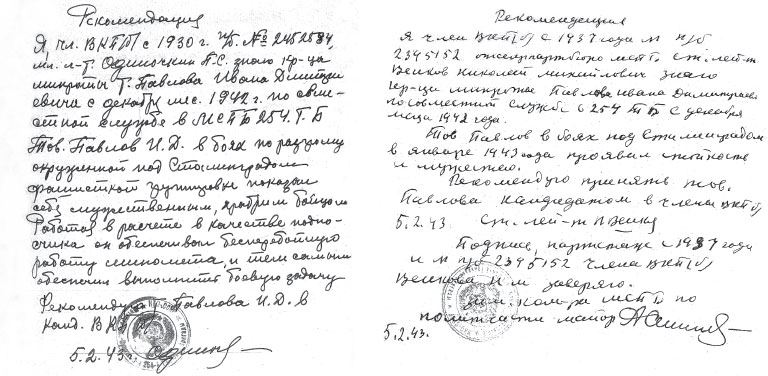 Рекомендация
Я, чл. ВКП(б) с 1930 г. п/б. № 2452584,
мл. л-т. Одиночкин П.С. знаю кр-ца
минроты т. Павлова Ивана Дмитри
евича с декабря мес. 1942 г. по совме-
стной службе в МСПБ 254. Т. Б
Тов. Павлов И. Д. в боях по разгрому
окруженной под Сталинградом
фашистской группировки показал
себя мужественным, храбрым бойцом.
Работая в расчете в качестве подно-
счика он обеспечивал бесперебойную
работу миномета, и тем самым
обеспечил выполнить боевую задачу
Рекомендую Павлова И. Д. в
канд. ВКП(б)
5.2.43г.
Рекомендация
Я член ВКП(б) с 1937 года п/б
2345152 МСПБ ст. лей-т
Венков Николай Михайлович знаю
кр-ца минроты Павлова Ивана Дмитриевича
по совместной службе в 254 ТБ с декабря
м-ца 1942 года.
Тов Павлов в боях под Сталинградом
в январе 1943 года проявил стойкость
и мужество.
Рекомендую принять тов.
Павлова кандидатом в члены ВКП(б)
5.2.43. Ст. лей-т
Подпись, партстаж с 1937 года
и № п/б 2345152 члена ВКП(б)
Венкова Н. М. заверяю.
Зам. ком-ра МСПБ по
политчасти майор
5.2.43.